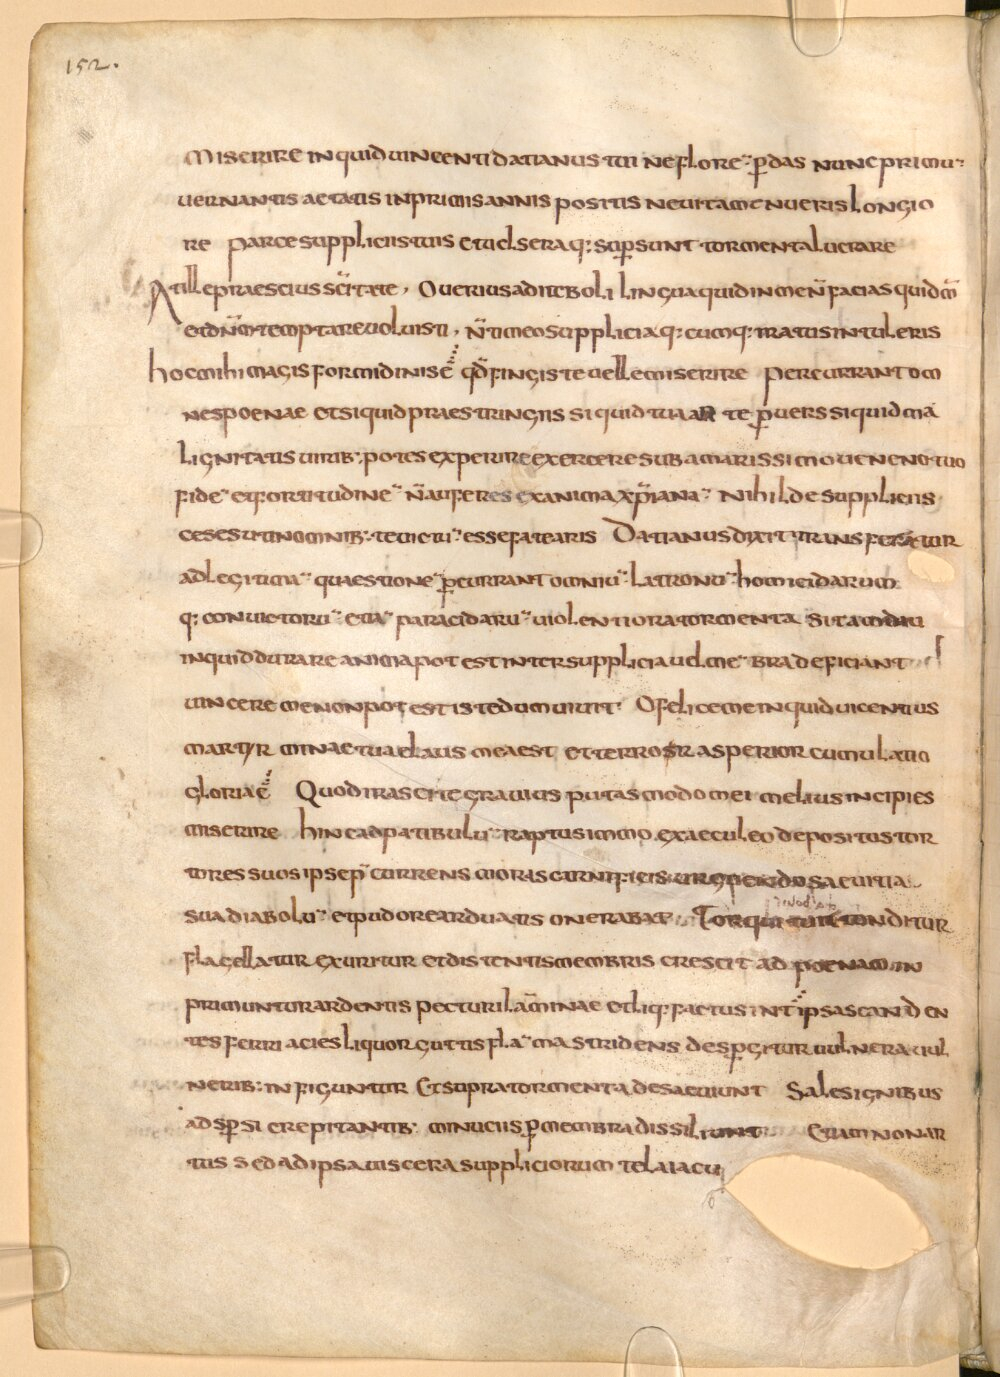 152.
Miserire inquid uincenti datianus tui ne flore¨ p̱das nunc primu¨
uernantis aetatis inprimis annis positis ne uitam tnueris longio
re parce suppliciis tuis et uel seraq: sup̱sunt tormenta lucrare
At ille praescius sc̄itate, O uerius ad te boli lingua quid in men̄ facias quid dm̄
et dn̄m temptare uoluisti, n̄ timeo supplicia q:cumq: iratus intuleris
hoc mihi magis formidinis ē qd̄ fingis te uelle miserire Percurrant om
nes poenae et si quid praestringiis si quid tua an te p̱uers si quid ma
lignitatis uirib: potes experire exercere sub amarissimo ueneno tuo
fide¨ et fortitudine¨ n̄ auferes ex anima xp̄iana¨ Nihil de suppliciis
ceses ut in omnib: te uictu¨ esse fatearis Datianus dixit transferatur
ad legitima¨ quaestione¨ p̱currant omniu¨ latronu¨ homicidarum
q: conuictoru¨ etia¨ paracidaru¨ uiolentiora tormenta Si tamdiu
inquid durare anima potest inter supplicia uel me¨bra deficiant
uincere me non potest iste dum uiuit O felice me inquid uicentius
martyr minae tuae laus mea est et terror asperior cumulatio
gloriae ē Quod irasci te grauius putas modo mei melius incipies
miserire hinc ad patibulu¨ raptus immo ex aeculeo depositus tor
tores suos ipse p̄currens moras carnificis urguendo saeuitia
diaboli
sua diabolu¨ et pudore arduatis onerabat Torquitur tonditur
flagellatur exuritur et distentis membris crescit ad poenam in
primuntur ardentis pecturi lāminae et liq:factus int̄ ipsas canden
tes ferri acies liquor guttis fla¨ma stridens desp̱gitur uulnera uul
nerib: infiguntur Et supra tormenta desaeuiunt Sales ignibus
adsp̱si crepitantib: minuciis p̱ membra dissiliunt Etiam non ar
tus sed ad ipsa uiscera suppliciorum tela iacu